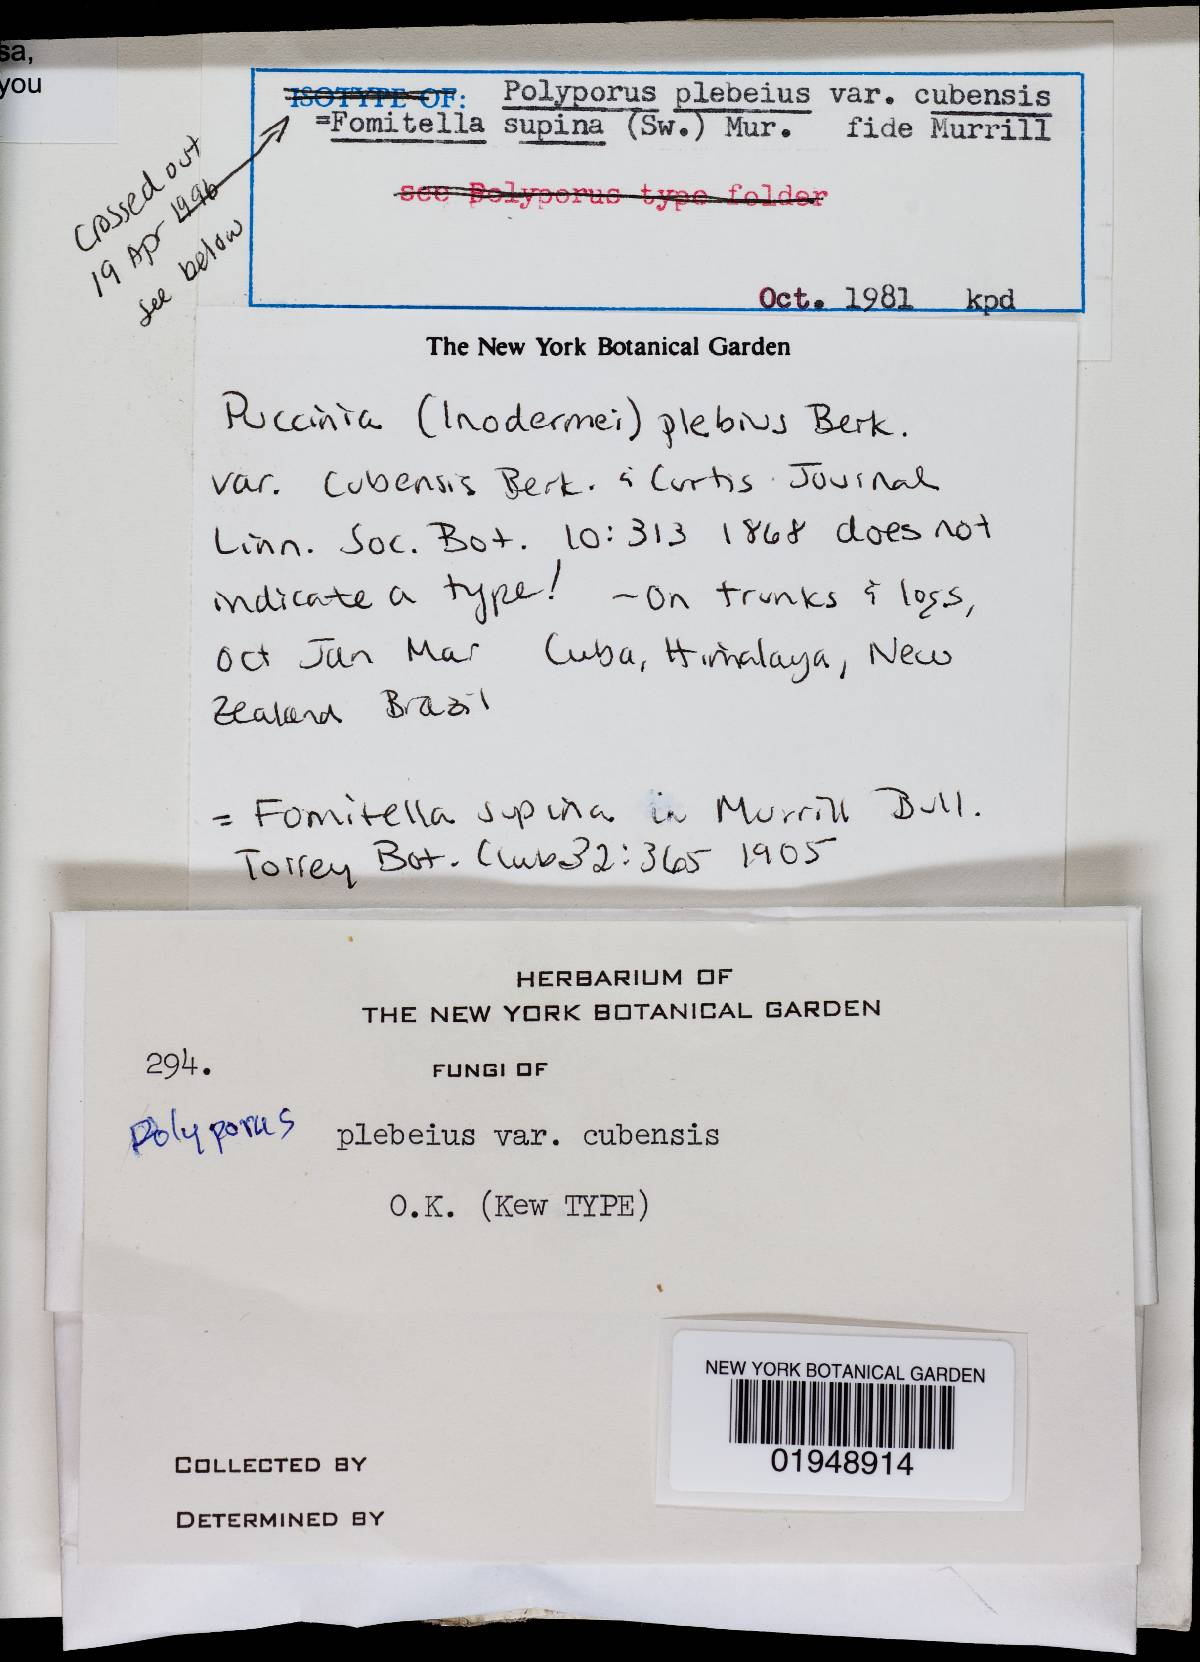 sa,
you
ISOTYPE OF: Polyporus plebeius var. cubensis
=Fomitella supina (Sw.) Mur. fide Murrill
see Polyporus type folder
Oct. 1981 kpd
Crossed out
19 Apr 1996
see below
The New York Botanical Garden
Puccinia (Inodermei) plebius Berk.
var. cubensis Berk. & Curtis Journal
Linn. Soc. Bot. 10:313 1868 does not
indicate a type! - On trunks & logs,
Oct Jan Mar Cuba, Himalaya, New
Zealand Brazil
= Fomitella supina in Murrill Bull.
Torrey Bot. Club 32:365 1905
HERBARIUM OF
THE NEW YORK BOTANICAL GARDEN
294.
FUNGI OF
Polyporus plebeius var. cubensis
O.K. (Kew TYPE)
NEW YORK BOTANICAL GARDEN
01948914
COLLECTED BY
DETERMINED BY